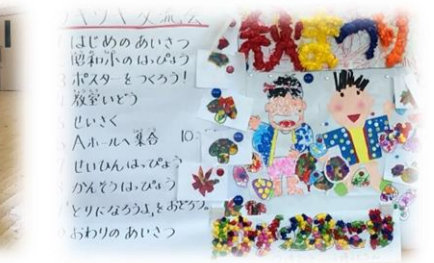 交流会
はじめのあいさつ
昭和小のはっぴょう
ポスターをつくろう！
教室いどう
せいさく
Aホールへ集合 10:
せいひんはっぴょう
かんそうはっぴょう
「とりになろうよ」をおどろう。
おわりのあいさつ
秋まつり